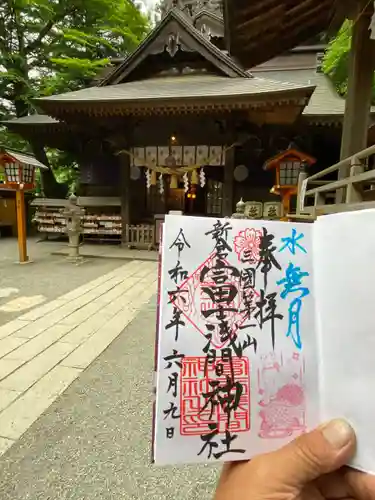 水無月
奉拝
三国第一山
新倉富士浅間神社
令和六年六月九日